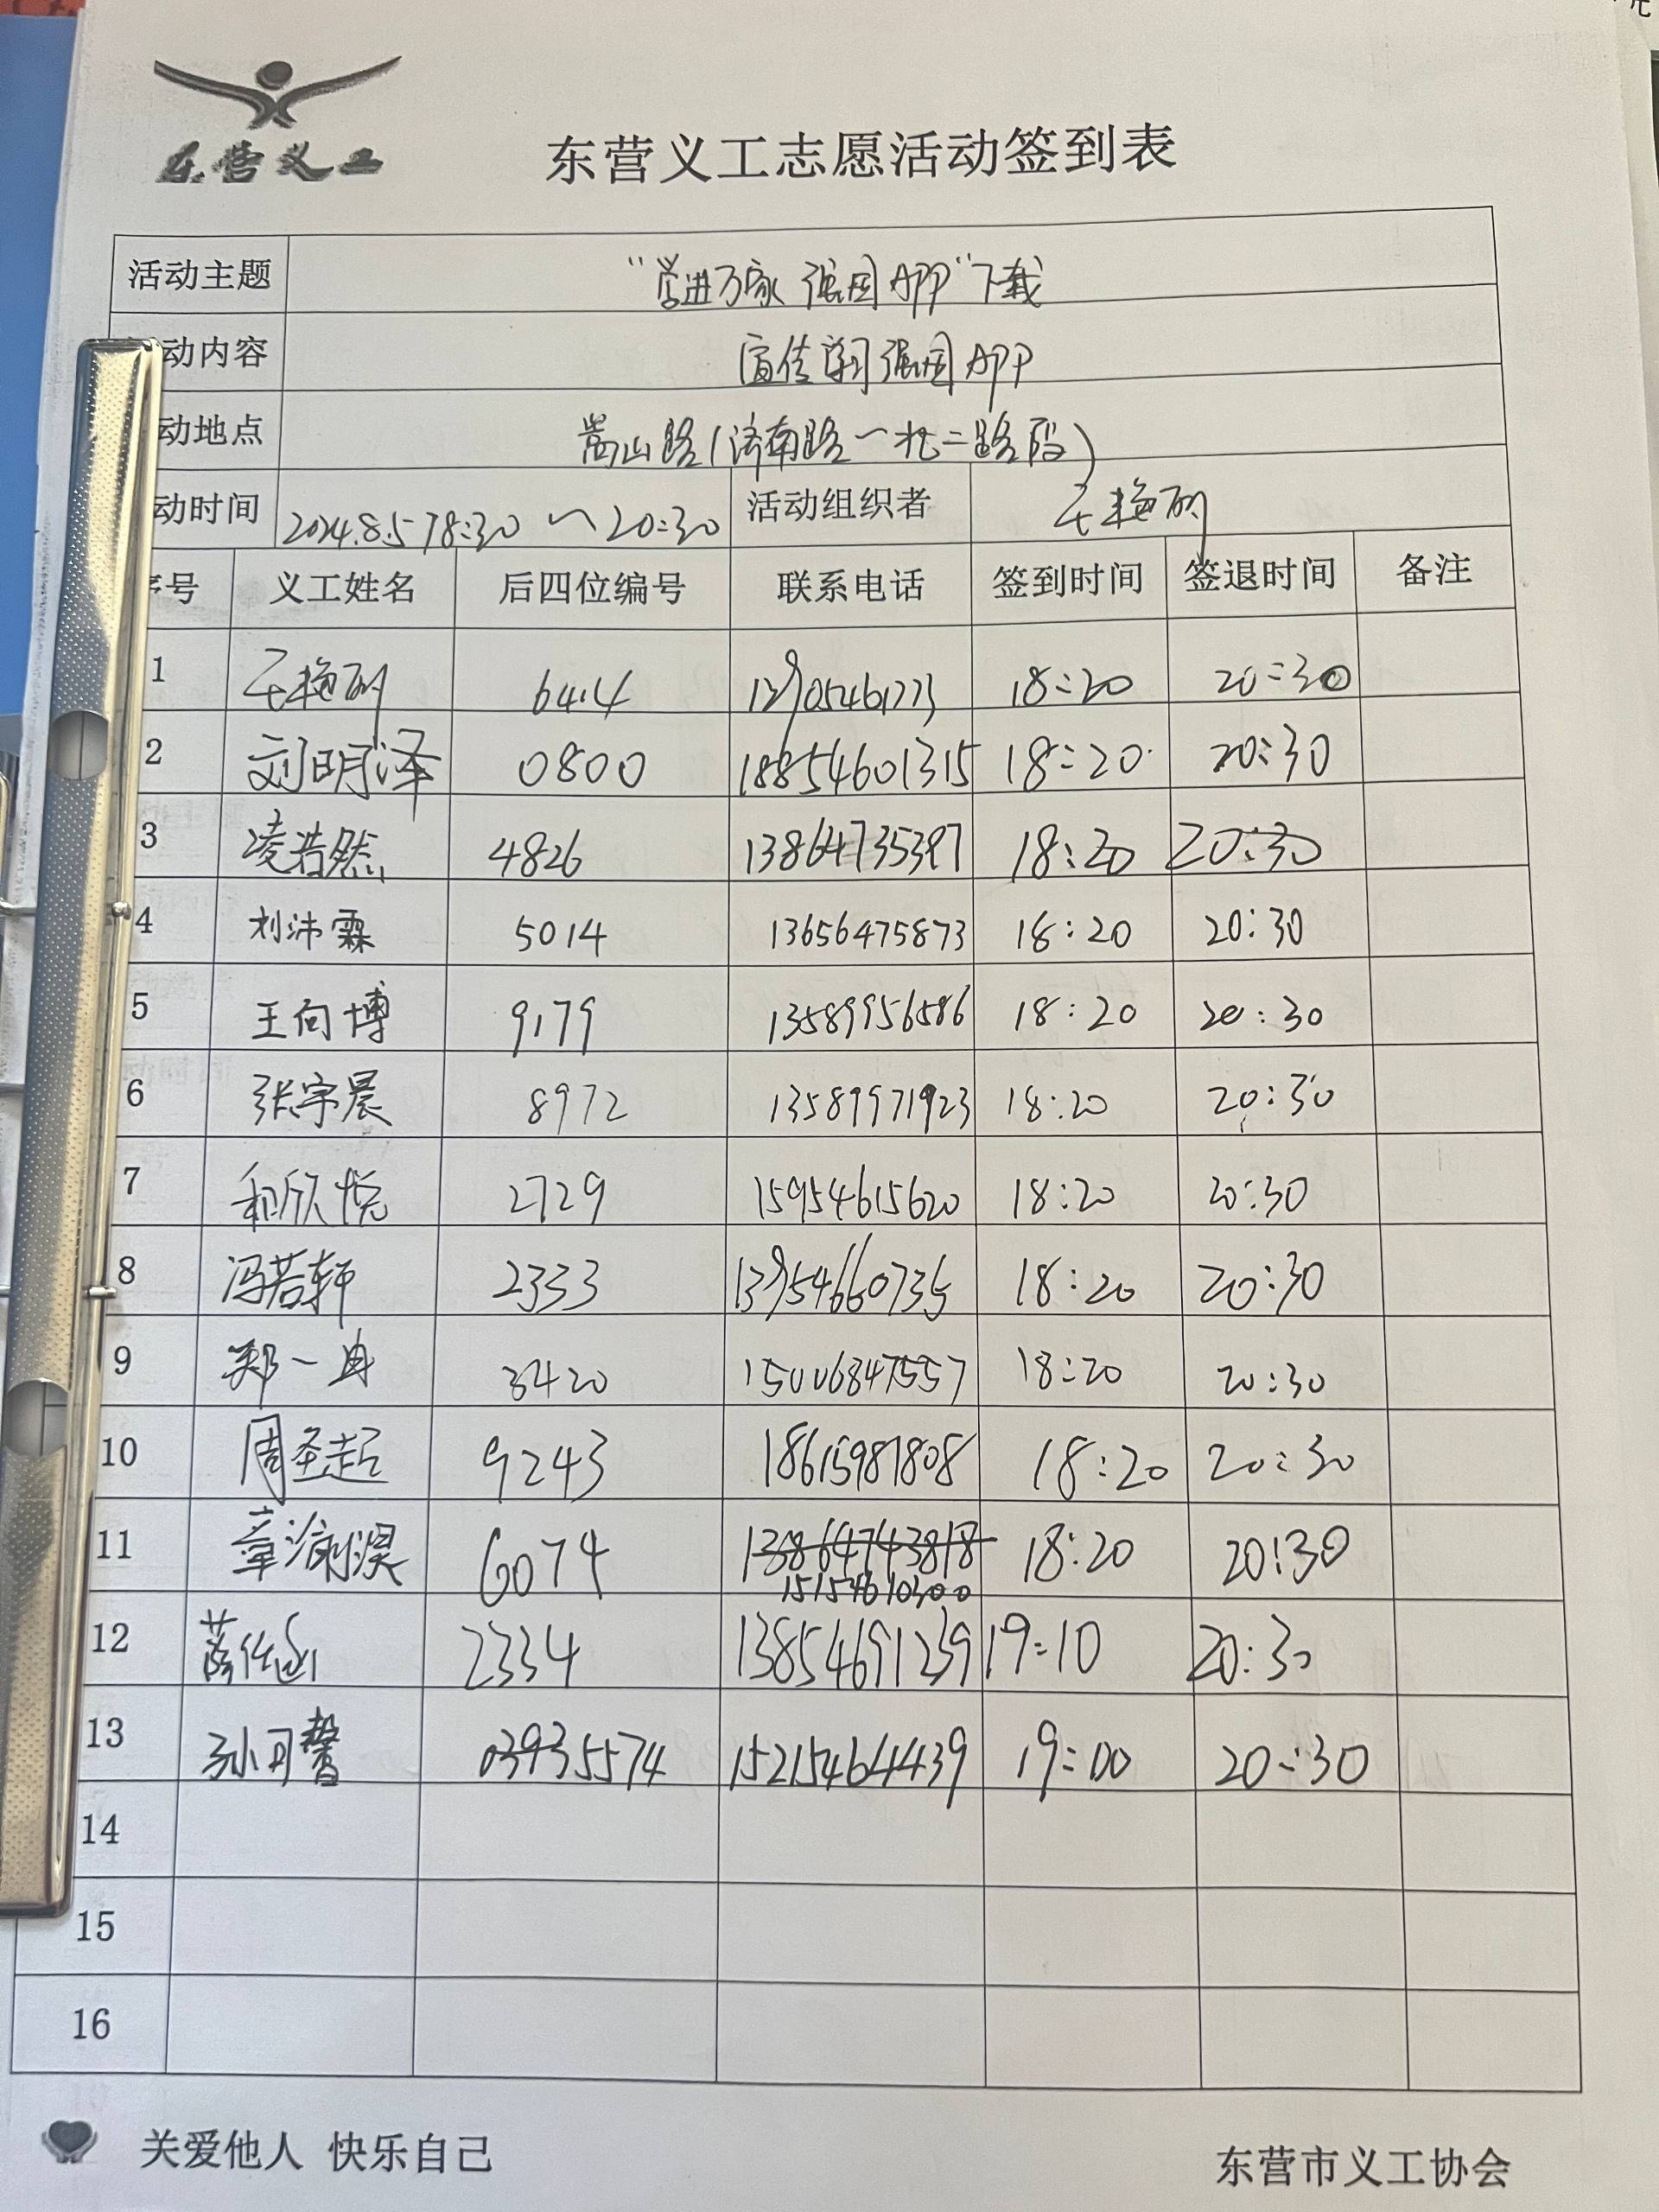 东营义工
东营义工志愿活动签到表
活动主题 “学进万家 强国APP”下载
动内容 宣传学习强国APP
动地点 嵩山路(济南路~北二路段)
动时间 2024.8.5 18:30 ~20:30 活动组织者
序号 义工姓名 后四位编号 联系电话 签到时间 签退时间 备注
1 6414 18:20 20:30
2 刘明泽 0800 18854601315 18:20 20:30
3 凌浩然 4826 13864735397 18:20 20:30
4 刘沛霖 5014 13656475873 18:20 20:30
5 王向博 9179 13589956586 18:20 20:30
6 张宇晨 8972 13589971923 18:20 20:30
7 和欣悦 2729 15954615620 18:20 20:30
8 冯若轩 2333 13954660735 18:20 20:30
9 郑一冉 3420 15006847557 18:20 20:30
10 周圣超 9243 18615981808 18:20 20:30
11 6074 13864743818 18:20 20:30
15154610300
12 2334 13854691239 19:10 20:30
13 孙可馨 03935574 15215464439 19:00 20:30
14
15
16
关爱他人 快乐自己
东营市义工协会